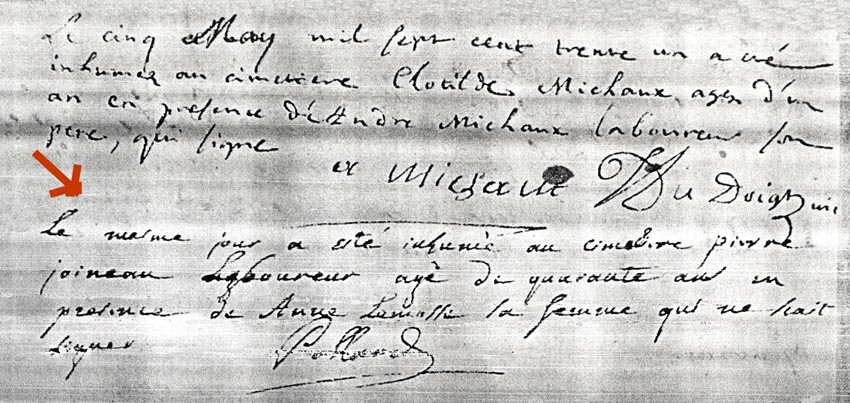 Le cinq May mil sept cent trente un a eté
inhumeé au cimetiere Clotilde Michaux ageé d'un
an en présence d'Andre Michaux laboureur son
pere, qui signe
a Michaut Du Doigt
Le mesme jour a esté inhumé au cimetiere pierre
joineau Laboureur agé de quarante ans en
presence de Anne la femme qui ne sait
signer Pollard